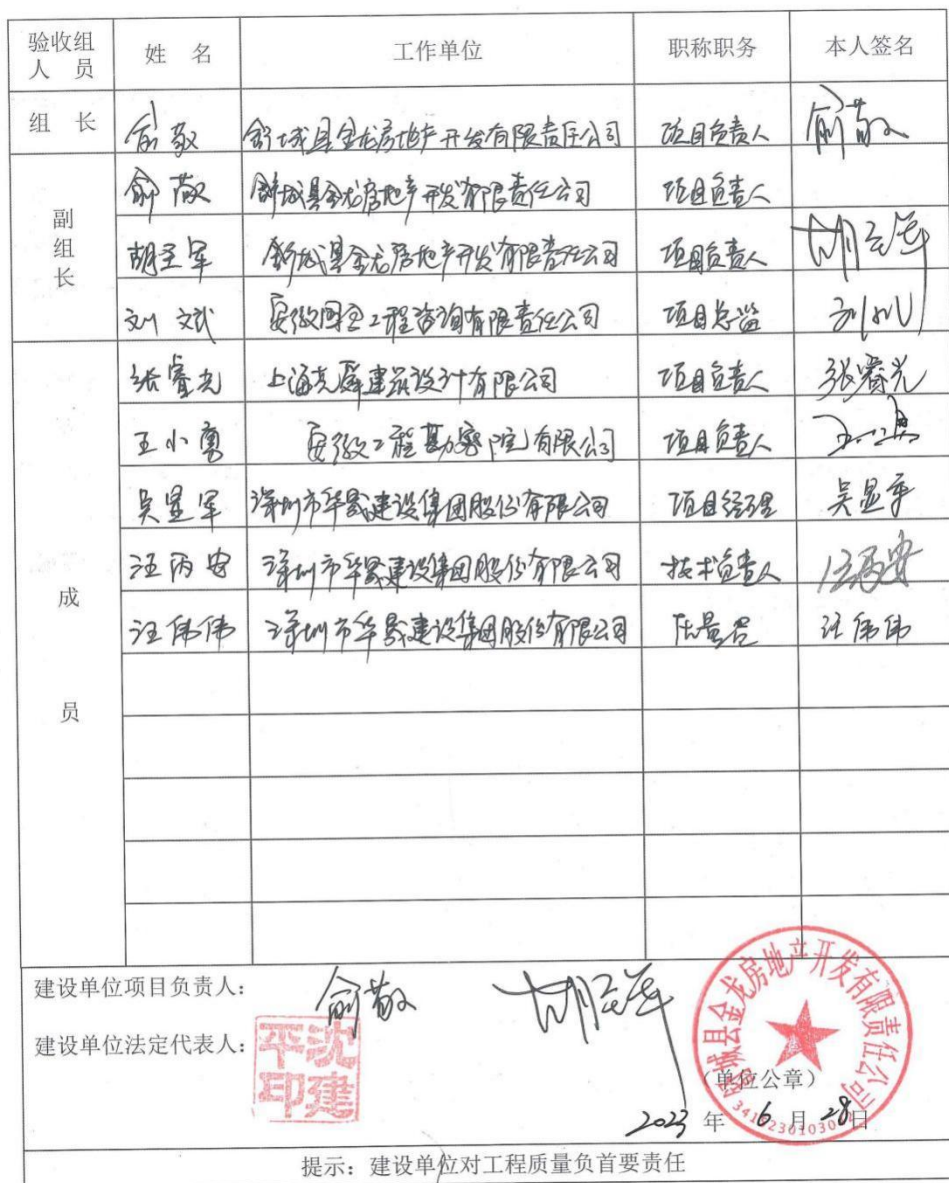 验收组人员 姓名 工作单位 职称职务 本人签名
组长 俞敬 舒城县金龙房地产开发有限责任公司 项目负责人 俞敬
副组长 俞敬 舒城县金龙房地产开发有限责任公司 项目负责人
胡圣军 舒城县金龙房地产开发有限责任公司 项目负责人 胡圣军
刘斌 安徽国正工程咨询有限责任公司 项目总监
成员 张睿光 上海 建筑设计有限公司 项目负责人 张睿光
王小勇 安徽工程勘察院有限公司 项目负责人
吴显军 深圳市华晟建设集团股份有限公司 项目经理 吴显军
汪丙安 深圳市华晟建设集团股份有限公司 技术负责人 汪丙安
汪伟伟 深圳市华晟建设集团股份有限公司 质量员 汪伟伟
建设单位项目负责人: 俞敬 胡圣军
建设单位法定代表人: 沈建平印
舒城县金龙房地产开发有限责任公司
(单位公章)
2023 年 6 月 28 日
提示:建设单位对工程质量负首要责任